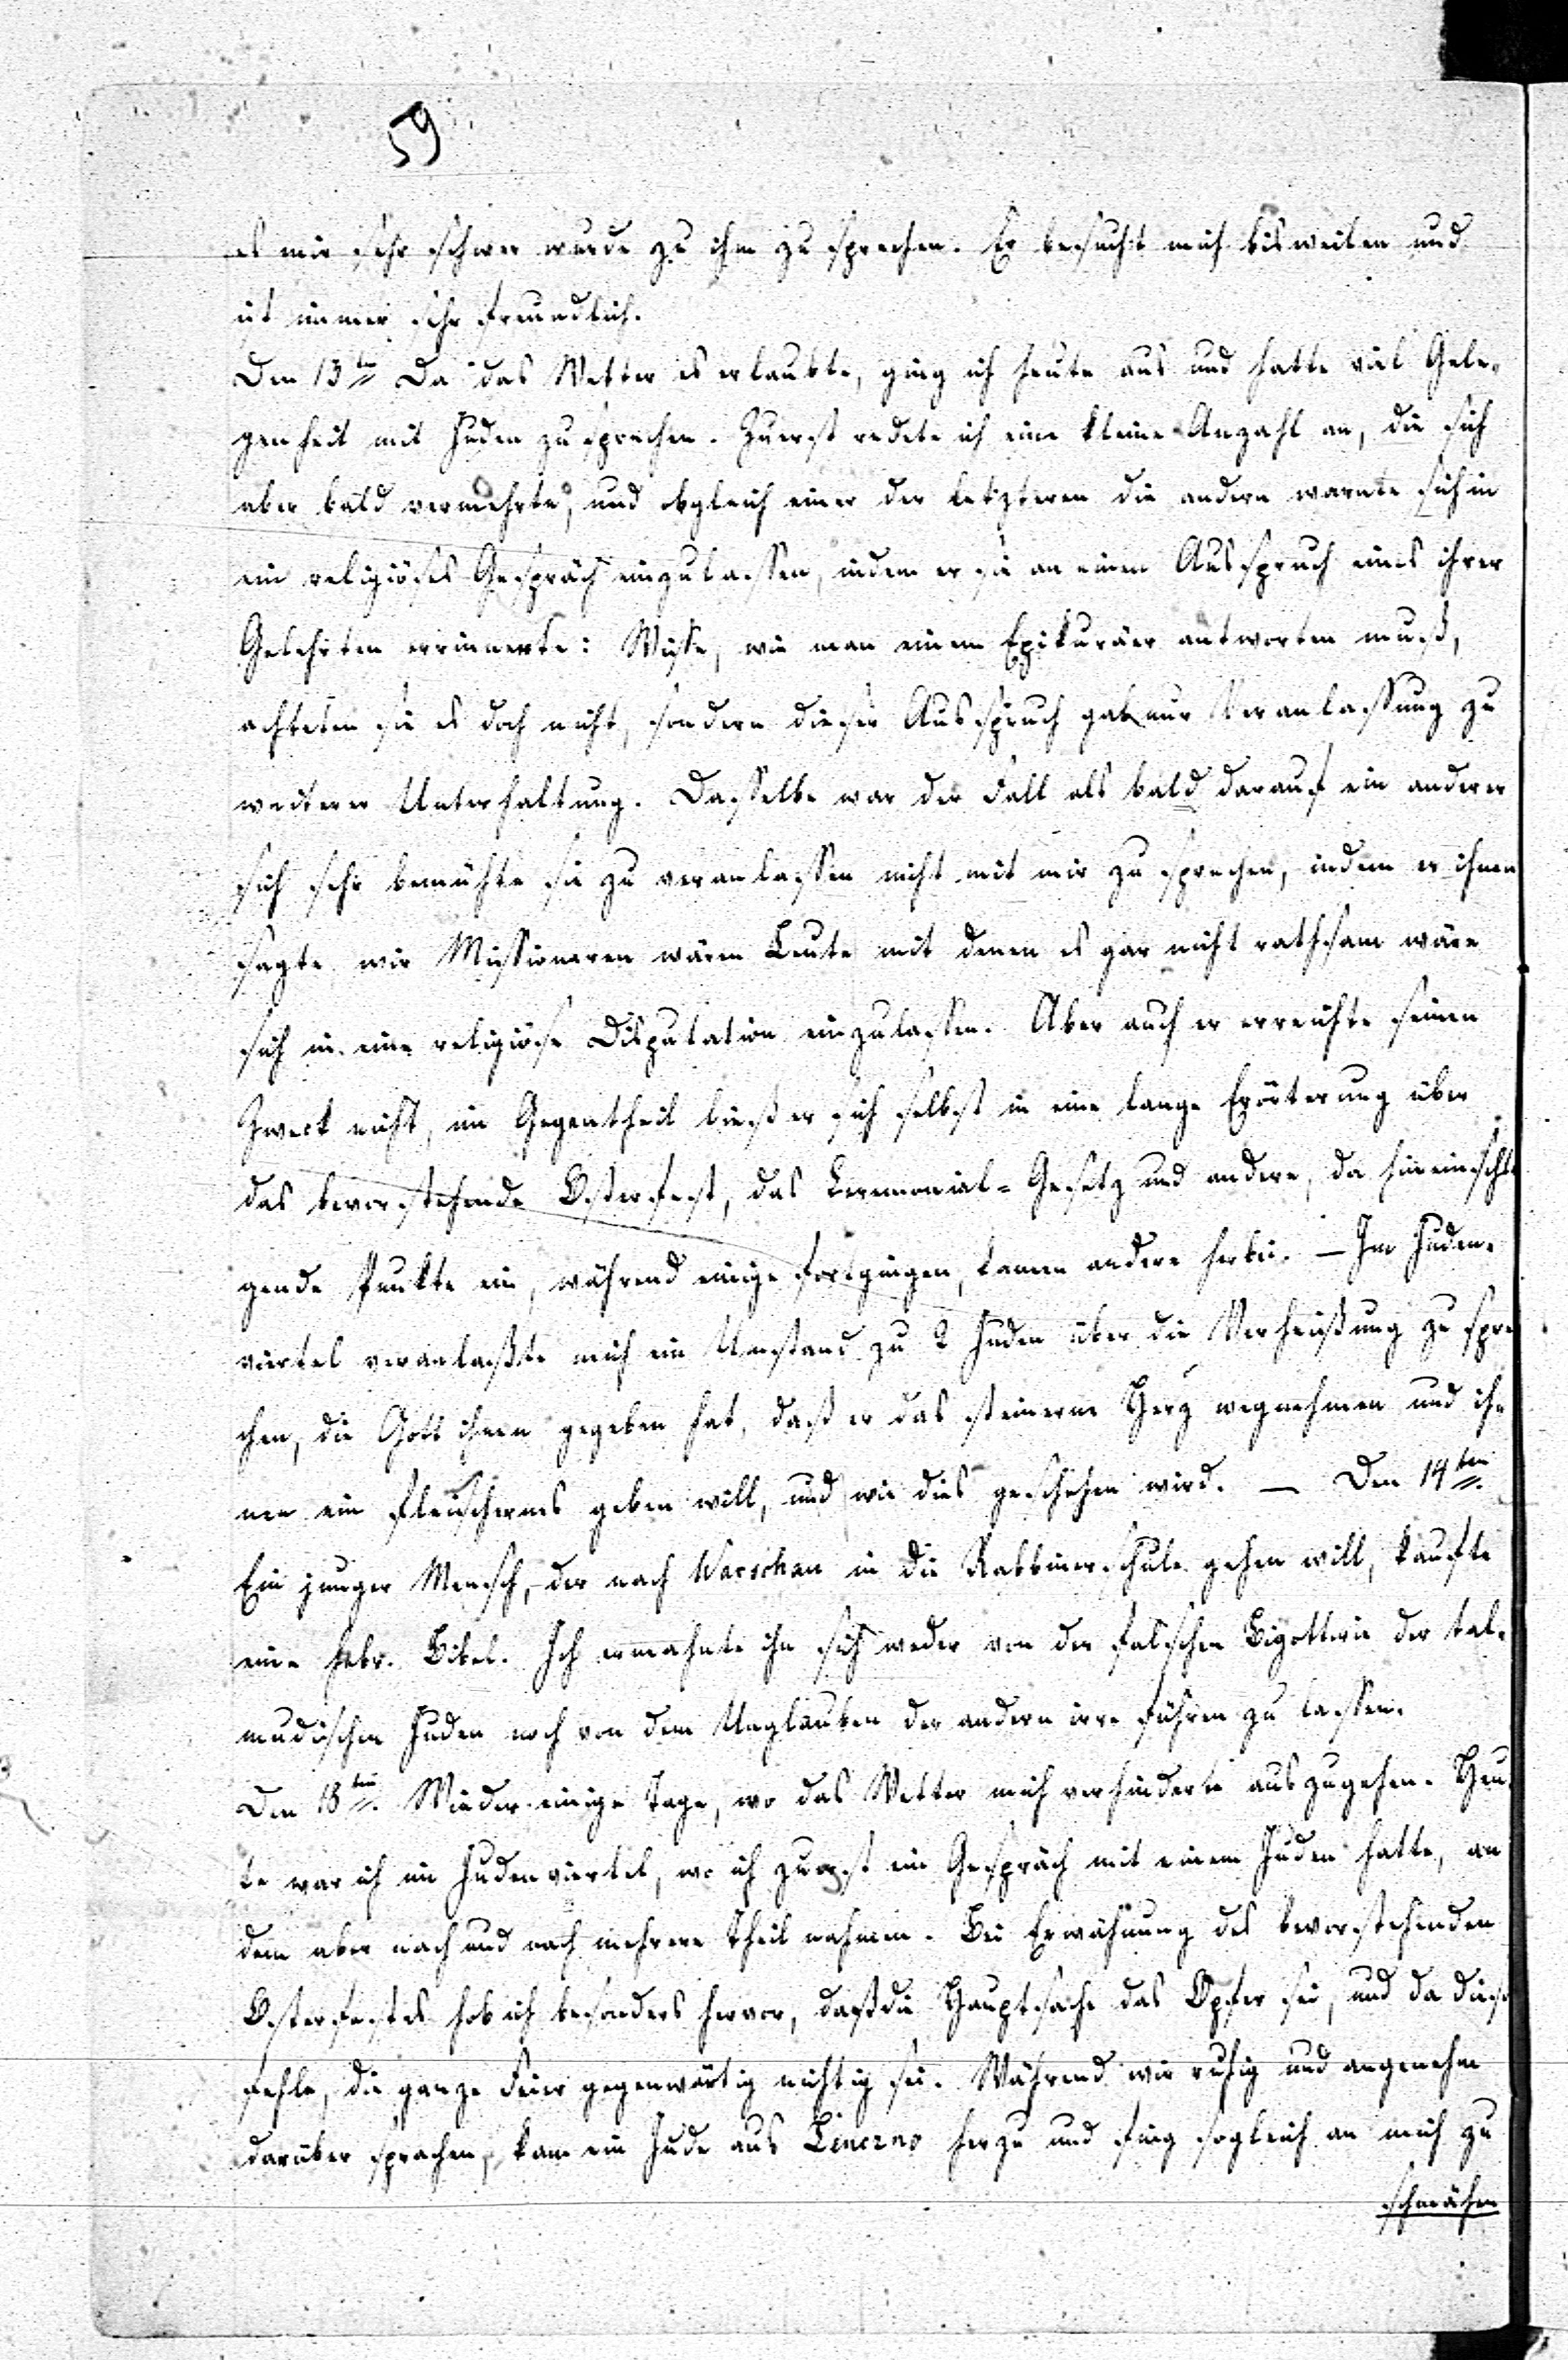 59
es mir sehr schwer wurde zu ihm zu sprechen. Er besucht mich bisweilen und
ist immer sehr freundlich.
Den 13ten Da das Wetter es erlaubte, ging ich heute aus und hatte viel Gele-
genheit mit Juden zu sprechen. Zuerst redete ich eine kleine Anzahl an, die sich
aber bald vermehrte, und obgleich einer der letzteren die andern warnte sich in
ein religiöses Gespräch einzulassen, indem er sie an einen Ausspruch eines ihrer
Gelehrten errinnerte: Wisse, wie man einem Epikuräer antworten muß,
achteten sie es doch nicht, sondern dieser Ausspruch gab nur Veranlassung zu
weiterer Unterhaltung. Dasselbe war der Fall als bald darauf ein anderer
sich sehr bemühte sie zu veranlassen nicht mit mir zu sprechen, indem er ihnen
sagte wir Missionaren wären Leute mit denen es gar nicht rathsam wäre
sich in eine religiöse Disputation einzulassen. Aber auch er erreichte seinen
Zweck nicht, im Gegentheil ließ er sich selbst in eine lange Erörterung über
das bevorstehende Osterfest, das Ceremonial-Gesetz und andere, da hineinschla
gende Punkte ein, während einige fortgingen, kamen andere herbei. – Im Juden-
viertel veranlaßte mich ein Umstand zu 2 Juden über die Verheißung zu spre
chen, die Gott ihnen gegeben hat, daß er das steinerne Herz wegnehmen und ih
nen ein fleischernes geben will, und wie dies geschehen wird. – Den 14ten
Ein junger Mensch, der nach Warschau in die Rabbinerschule gehen will, kaufte
eine hebr. Bibel. Ich ermahnte ihn sich weder von der falschen Bigotterie der tal-
mudischen Juden noch von dem Unglauben der andern irre führen zu lassen.
Den 18ten Wieder einige Tage, wo das Wetter mich verhinderte auszugehen. Heu
te war ich im Judenviertel, wo ich zuerst ein Gespräch mit einem Juden hatte, an
dem aber nach und nach mehrere Theil nahmen. Bei Erwähnung des bevorstehenden
Osterfestes hob ich besonders hervor, daß die Hauptsache das Opfer sei, und da dies
fehle, die ganze Feier gegenwärtig nichtig sei. Während wir ruhig und angenehm
darüber sprachen, kam ein Jude aus herzu und fing sogleich an mich zu
schmähen